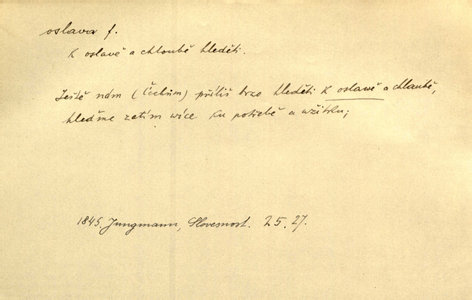 oslava f.
k oslavě a chloubě hleděti.
Ještě nám (Čechům) příliš brzo hleděti k oslavě a chlaubě,
hleďme zatím wíce ku potřebě a užitku;
1845 Jungmann, Slovesnost. 25. 27.